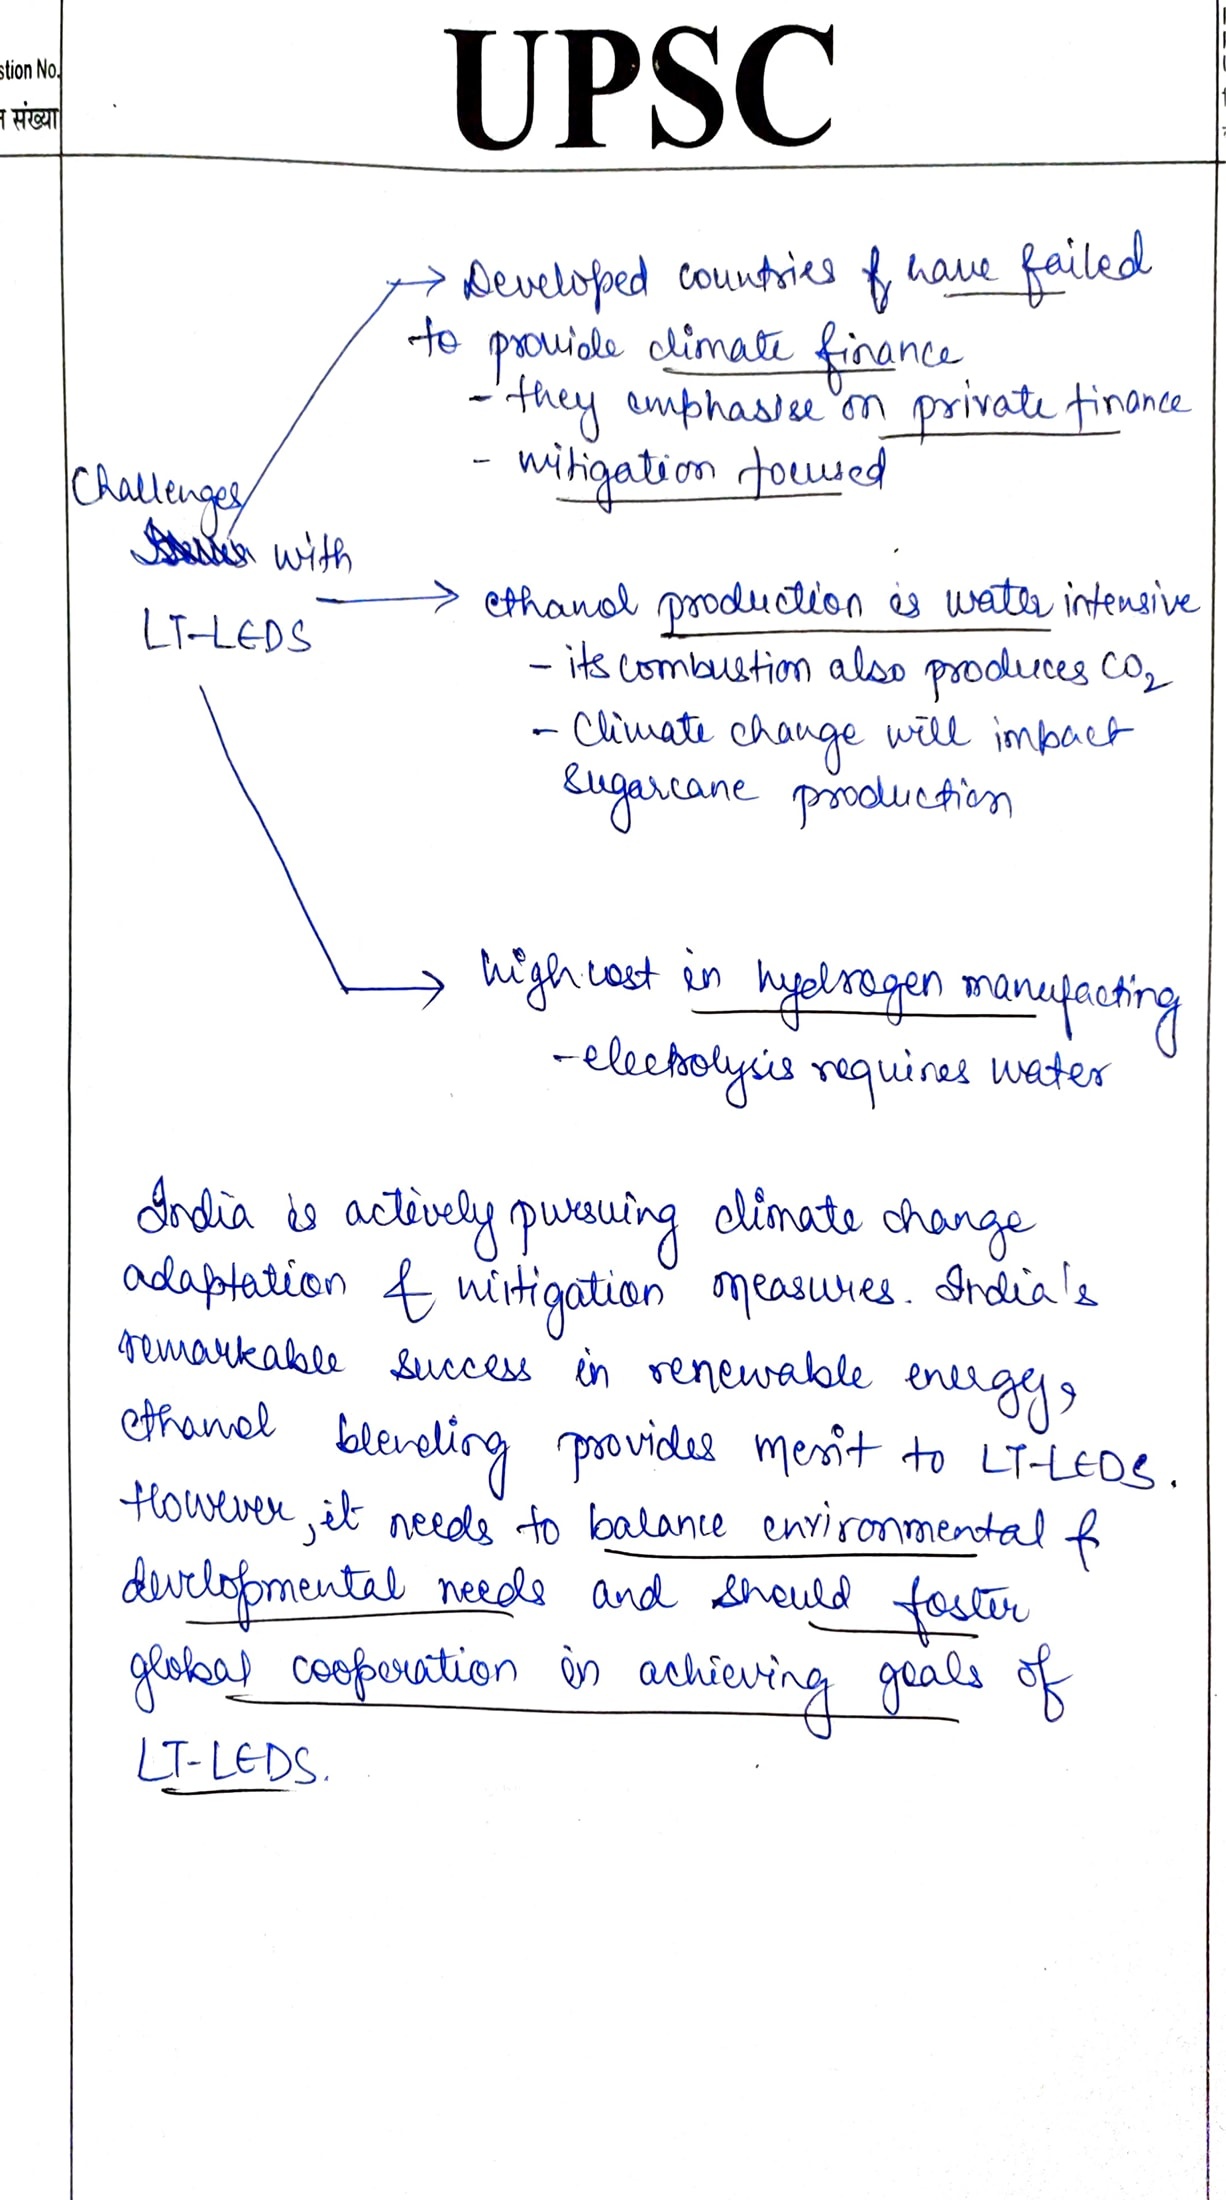 UPSC
stion No.
संख्या
Developed countries have failed
to provide climate finance
- they emphasise on private finance
- mitigation focused
Challenges
with
LT-LEDS
ethanol production is water intensive
- its combustion also produces CO2
- Climate change will impact
sugarcane production
high cost in hydrogen manufacting
- electrolysis requires water
India is actively pursuing climate change
adaptation & mitigation measures. India's
remarkable success in renewable energy,
ethanol blending provides merit to LT-LEDS.
However, it needs to balance environmental &
developmental needs and should foster
global cooperation in achieving goals of
LT-LEDS.